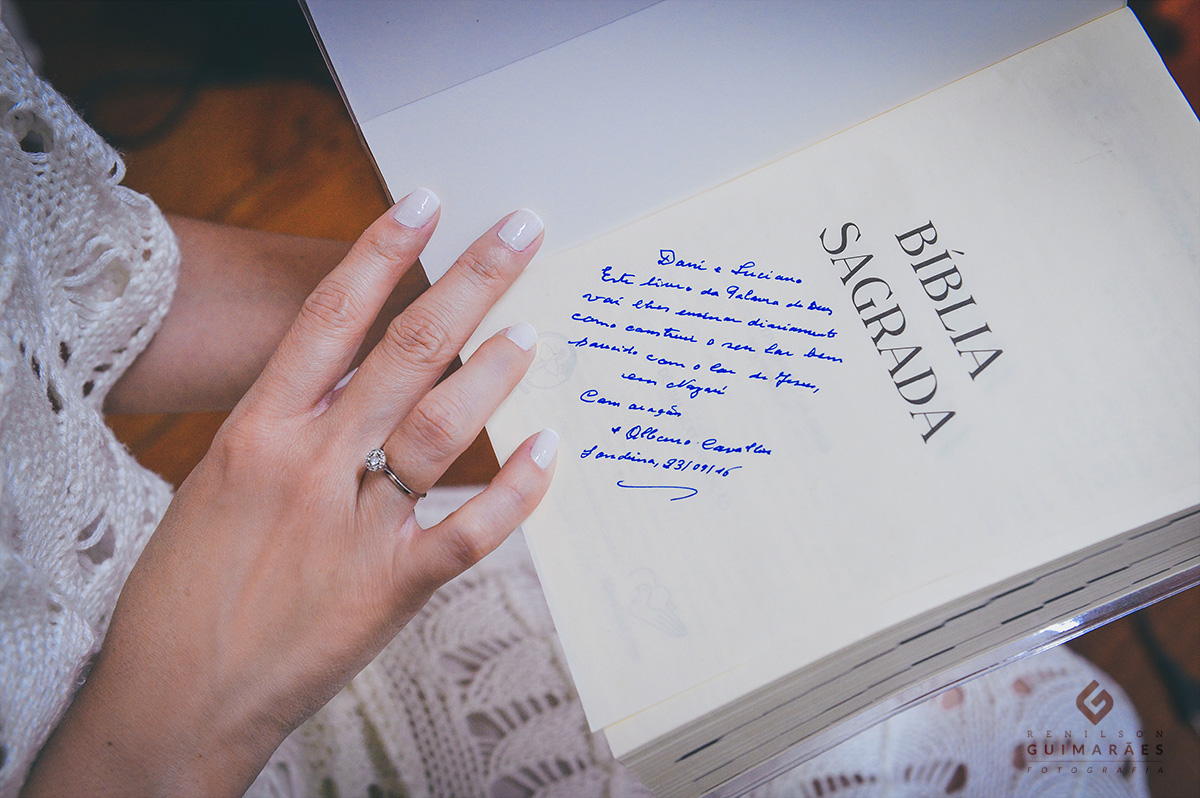 BÍBLIA
SAGRADA
Dani e Luciano
Este livro da Palavra de Deus
vai lhes ensinar diariamente
como construir o seu lar bem
parecido com o lar de Jesus,
em Nazaré
Com oração
+ Albano Cavallin
Londrina, 23/09/16
RENILSON
GUIMARÃES
FOTOGRAFIA